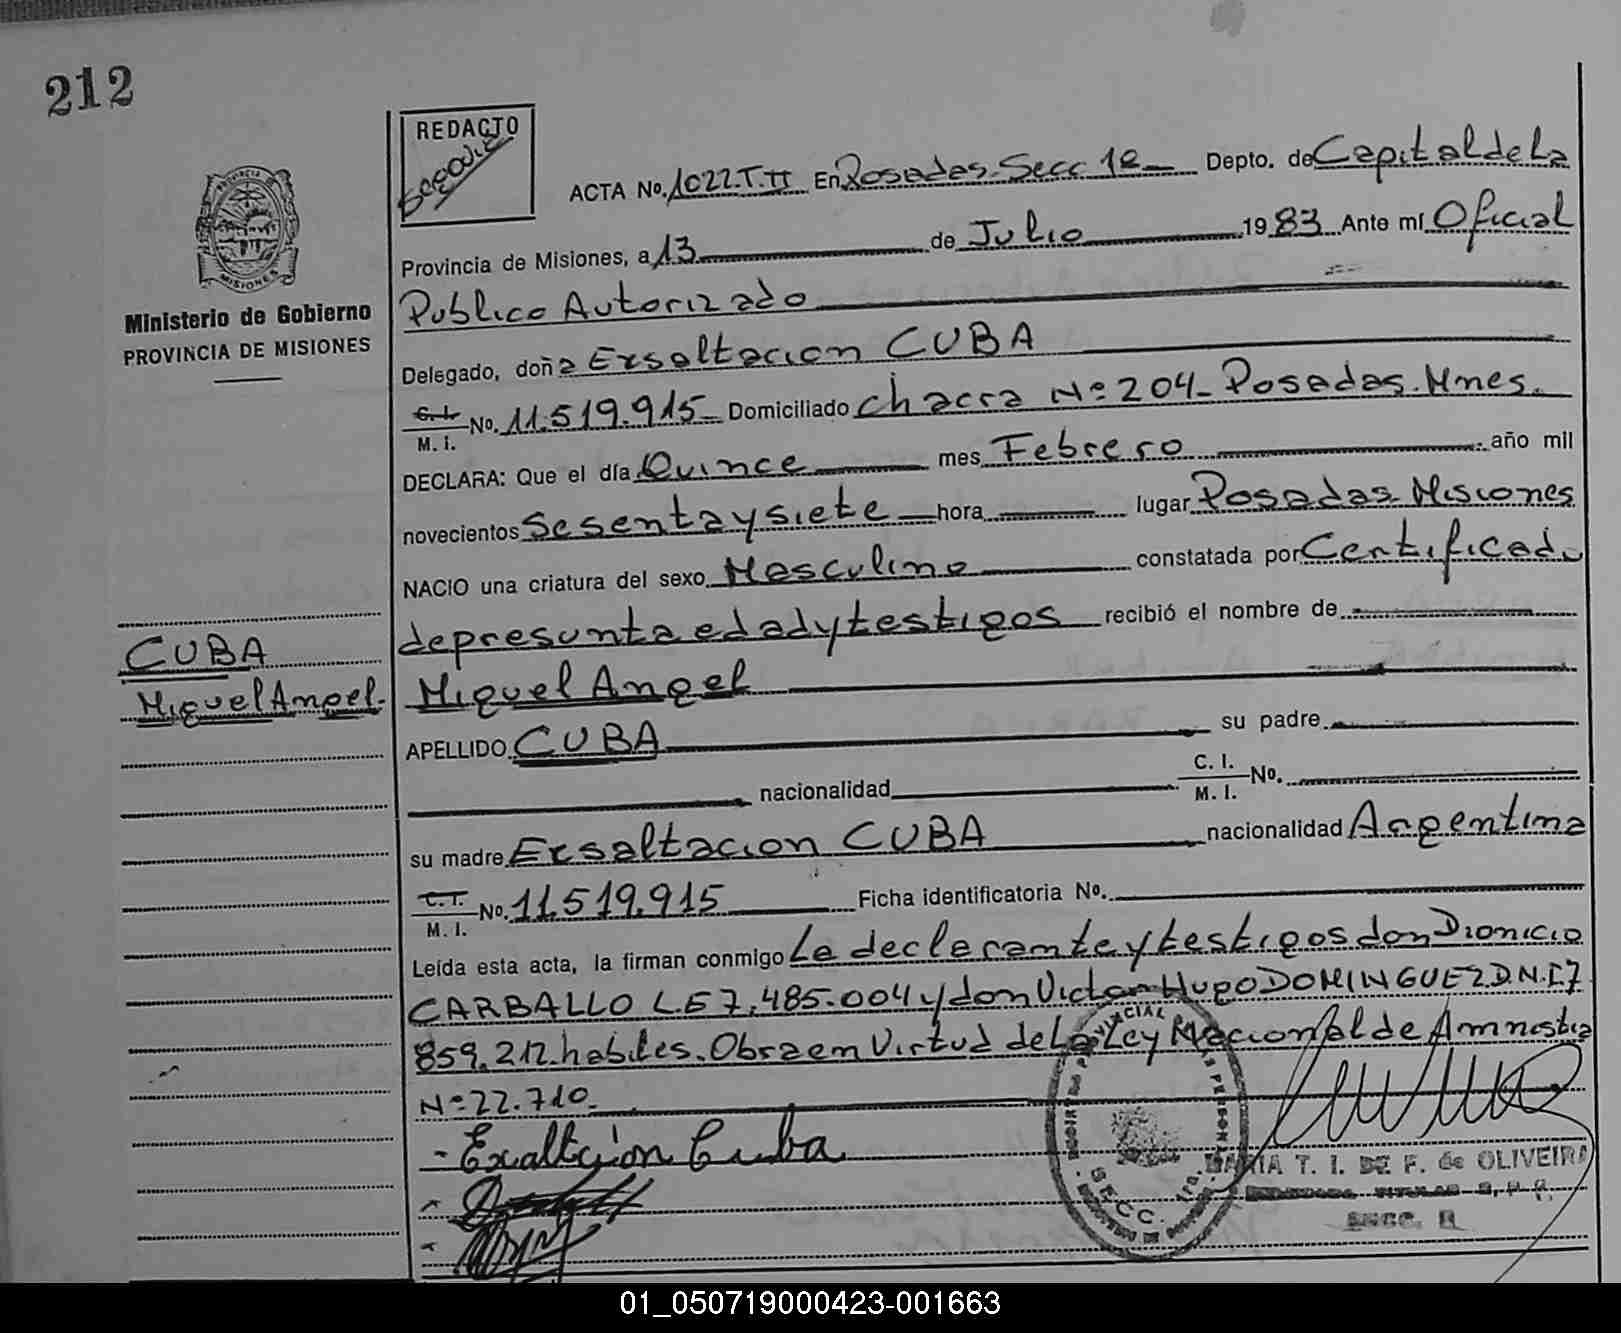 212
REDACTO
ACTA No. 1022.T.II En Posadas-Secc 1a Depto. de Capital de La
Provincia de Misiones, a 13 de Julio 1983 Ante mí Oficial
Publico Autorizado
PROVINCIA
MISIONES
Ministerio de Gobierno
PROVINCIA DE MISIONES
Delegado, doña Exsaltacion CUBA
C. I.
M. I. No. 11.519.915 Domiciliado chacra Nº 204-Posadas-Mnes.
DECLARA: Que el día Quince mes Febrero año mil
novecientos Sesenta y siete hora lugar Posadas-Misiones
NACIO una criatura del sexo Masculino constatada por Certificado
de presunta edad y testigos recibió el nombre de
CUBA
Miguel Angel.
Miguel Angel
APELLIDO CUBA su padre
nacionalidad C. I.
M. I. No.
su madre Exsaltacion CUBA nacionalidad Argentina
C. I.
M. I. No. 11.519.915 Ficha identificatoria Nº.
Leída esta acta, la firman conmigo La declarante y testigos don Dionicio
CARBALLO L.E 7.485.004 y don Victor Hugo DOMINGUEZ D.N.I 7
859.212. habiles. Obra en Virtud de La Ley Nacional de Amnistia
Nº 22.710.
- Exaltción Cuba
MARIA T. I. DE F. de OLIVEIRA
SECC.
01_050719000423-001663